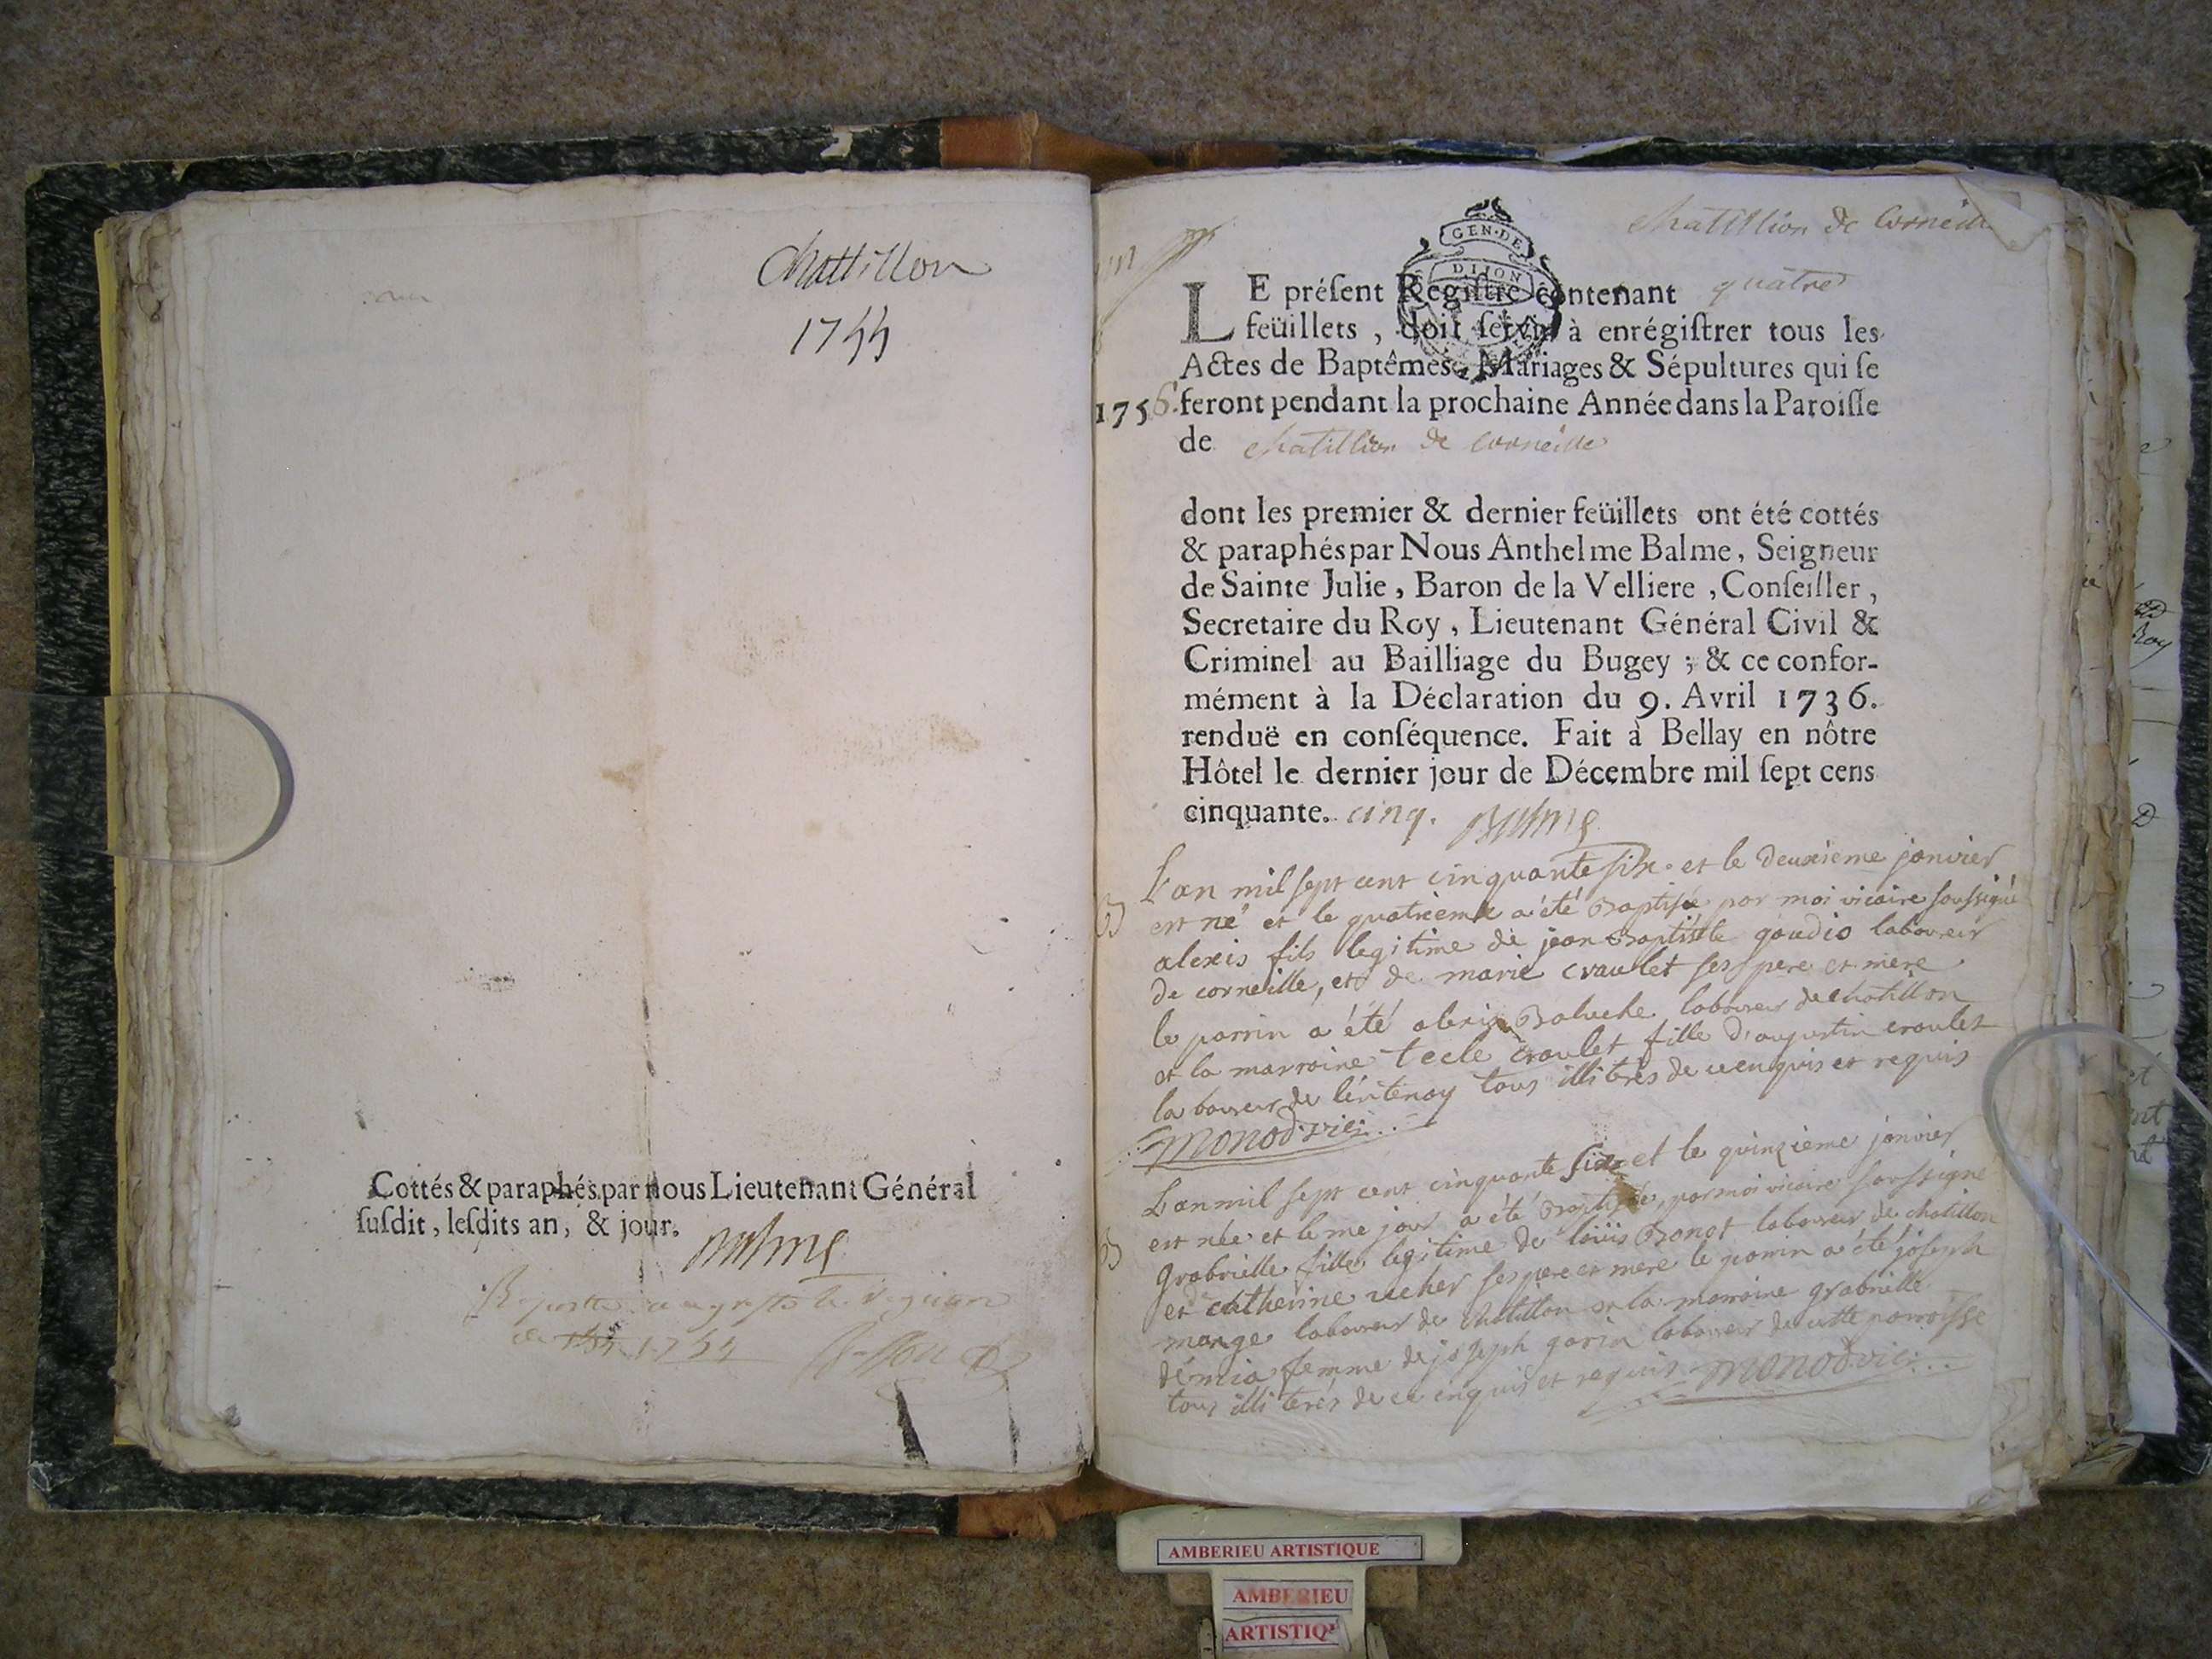 Chattillon
1755
Cottés & paraphés par nous Lieutenant Général
susdit, lesdits an, & jour.
Balme
1754
chatillion de Corneille
GEN. DE
DIJON
LE présent Registre contenant quatre
feüillets, doit servir à enrégistrer tous les
Actes de Baptêmes, Mariages & Sépultures qui se
1756. feront pendant la prochaine Année dans la Paroisse
de chatillion de Corneille
dont les premier & dernier feüillets ont été cottés
& paraphés par Nous Anthelme Balme, Seigneur
de Sainte Julie, Baron de la Velliere, Conseiller,
Secretaire du Roy, Lieutenant Général Civil &
Criminel au Bailliage du Bugey ; & ce confor-
mément à la Déclaration du 9. Avril 1736.
renduë en conséquence. Fait à Bellay en nôtre
Hôtel le dernier jour de Décembre mil sept cens
cinquante. cinq. Balme
L'an mil sept cent cinquante six et le deuxieme janvier
B est né et le quatrieme a été Baptisé par moi vicaire soussigné
alexis fils legitime de jean Baptistte gaudio laboureur
de corneille, et de marie craulet ses pere et mere
le parrin a été alexis Baluche laboureur de chatillon
et la marraine tecle craulet fille d'augustin craulet
laboureur de lentenay tous illiterés de ce enquis et requis
monod vic:
L'an mil sept cent cinquante six et le quinzieme janvier
est née et le me jour a été Baptisée, par moi vicaire soussigné
B grabrielle fille legitime de loüis Bonot laboureur de chatillon
et de catherine ses pere et mere le parrin a été joseph
mange laboureur de chatillon et la marraine grabrielle
démia femme de joseph garin laboureur de cette parroisse
tous illiterés de ce enquis et requis monod vic:
AMBERIEU ARTISTIQUE
AMBERIEU
ARTISTIQ